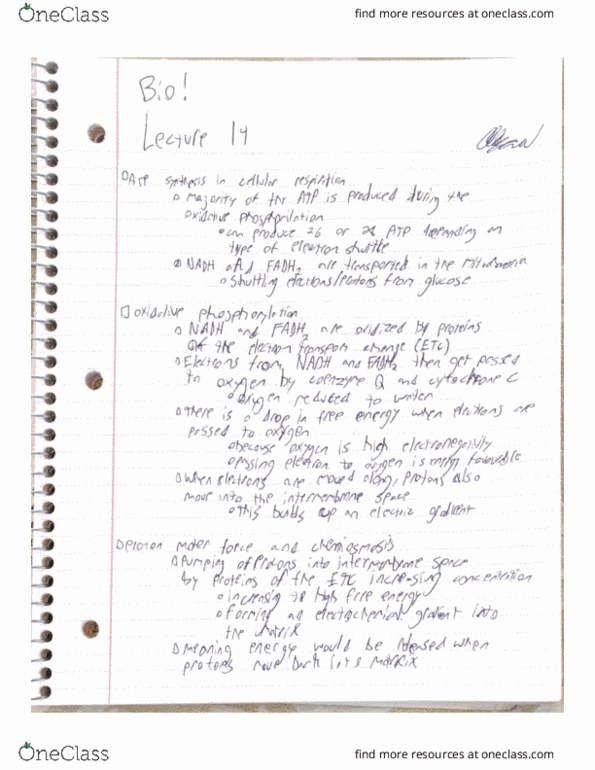 OneClass
find more resources at oneclass.com
Bio!
Lecture 14
ATP synthesis in cellular respiration
majority of the ATP is produced during the
oxidative
can produce 26 or 28 ATP depending on
type of electron shuttle
NADH and FADH2 are transported in the
shuttling electrons/protons from glucose
oxidative phosphorylation
NADH and FADH2 are oxidized by proteins
of the electron transport change (ETC)
Electrons from NADH and FADH2 then get passed
to oxygen by coenzyme Q and cytochrome C
oxygen reduced to water
there is a drop in free energy when electrons are
passed to oxygen
because oxygen is high electronegativity
passing electron to oxygen is energy favourable
when electrons are moved along, protons also
move into the intermembrane space
this builds up an electric gradient
proton motor force and chemiosmosis
pumping of protons into intermembrane space
by proteins of the ETC increasing concentration
increasing to high free energy
forming an electrochemical gradient into
the matrix
meaning energy would be released when
protons move back into matrix
OneClass
find more resources at oneclass.com